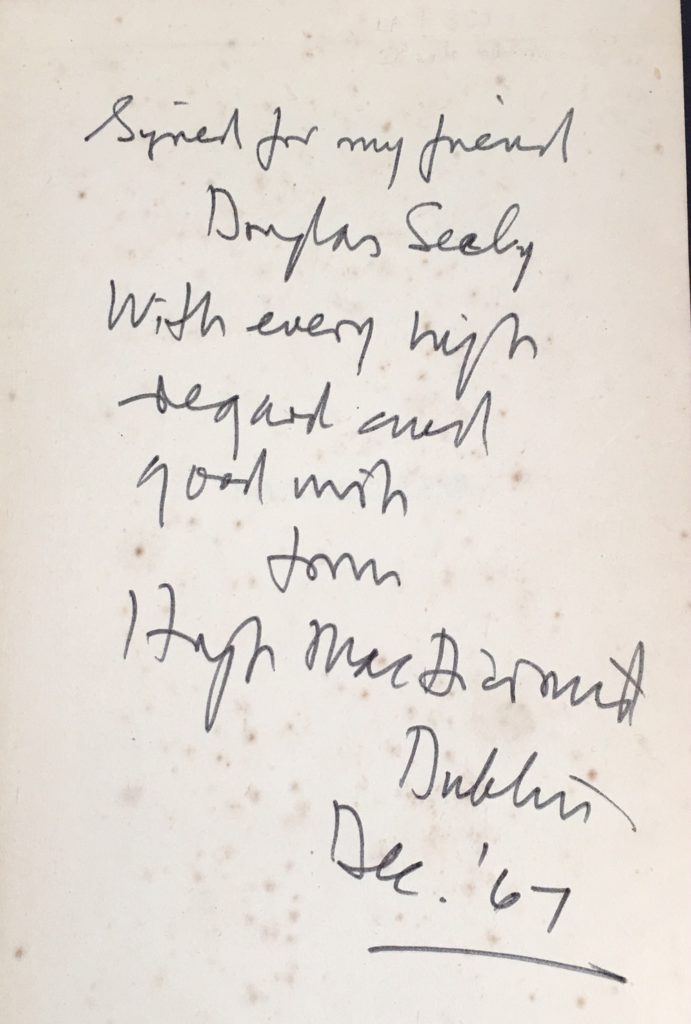 Signed for my friend
Douglas Sealy
With every high
regard and
good wish
from
Hugh MacDiarmid
Dublin
Dec. '67